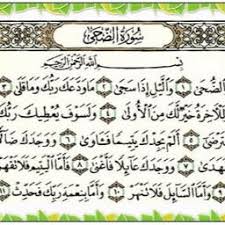 سُورَةُ الضُّحَى
بِسْمِ اللَّهِ الرَّحْمَنِ الرَّحِيمِ
الضُّحَى ١ وَالَّيْلِ إِذَا سَجَى ٢ مَا وَدَّعَكَ رَبُّكَ وَمَا قَلَى ٣
لَلْآخِرَةُ خَيْرٌ لَّكَ مِنَ الْأُولَى ٤ وَلَسَوْفَ يُعْطِيكَ رَبُّكَ
تَرْضَى ٥ أَلَمْ يَجِدْكَ يَتِيمًا فَآوَى ٦ وَوَجَدَكَ
فَهَدَى ٧ وَوَجَدَكَ عَائِلًا فَأَغْنَى ٨ فَأَمَّا الْيَتِيمَ فَلَا
٩ وَأَمَّا السَّائِلَ فَلَا تَنْهَرْ ١٠ وَأَمَّا بِنِعْمَةِ رَبِّكَ فَحَدِّثْ ١١